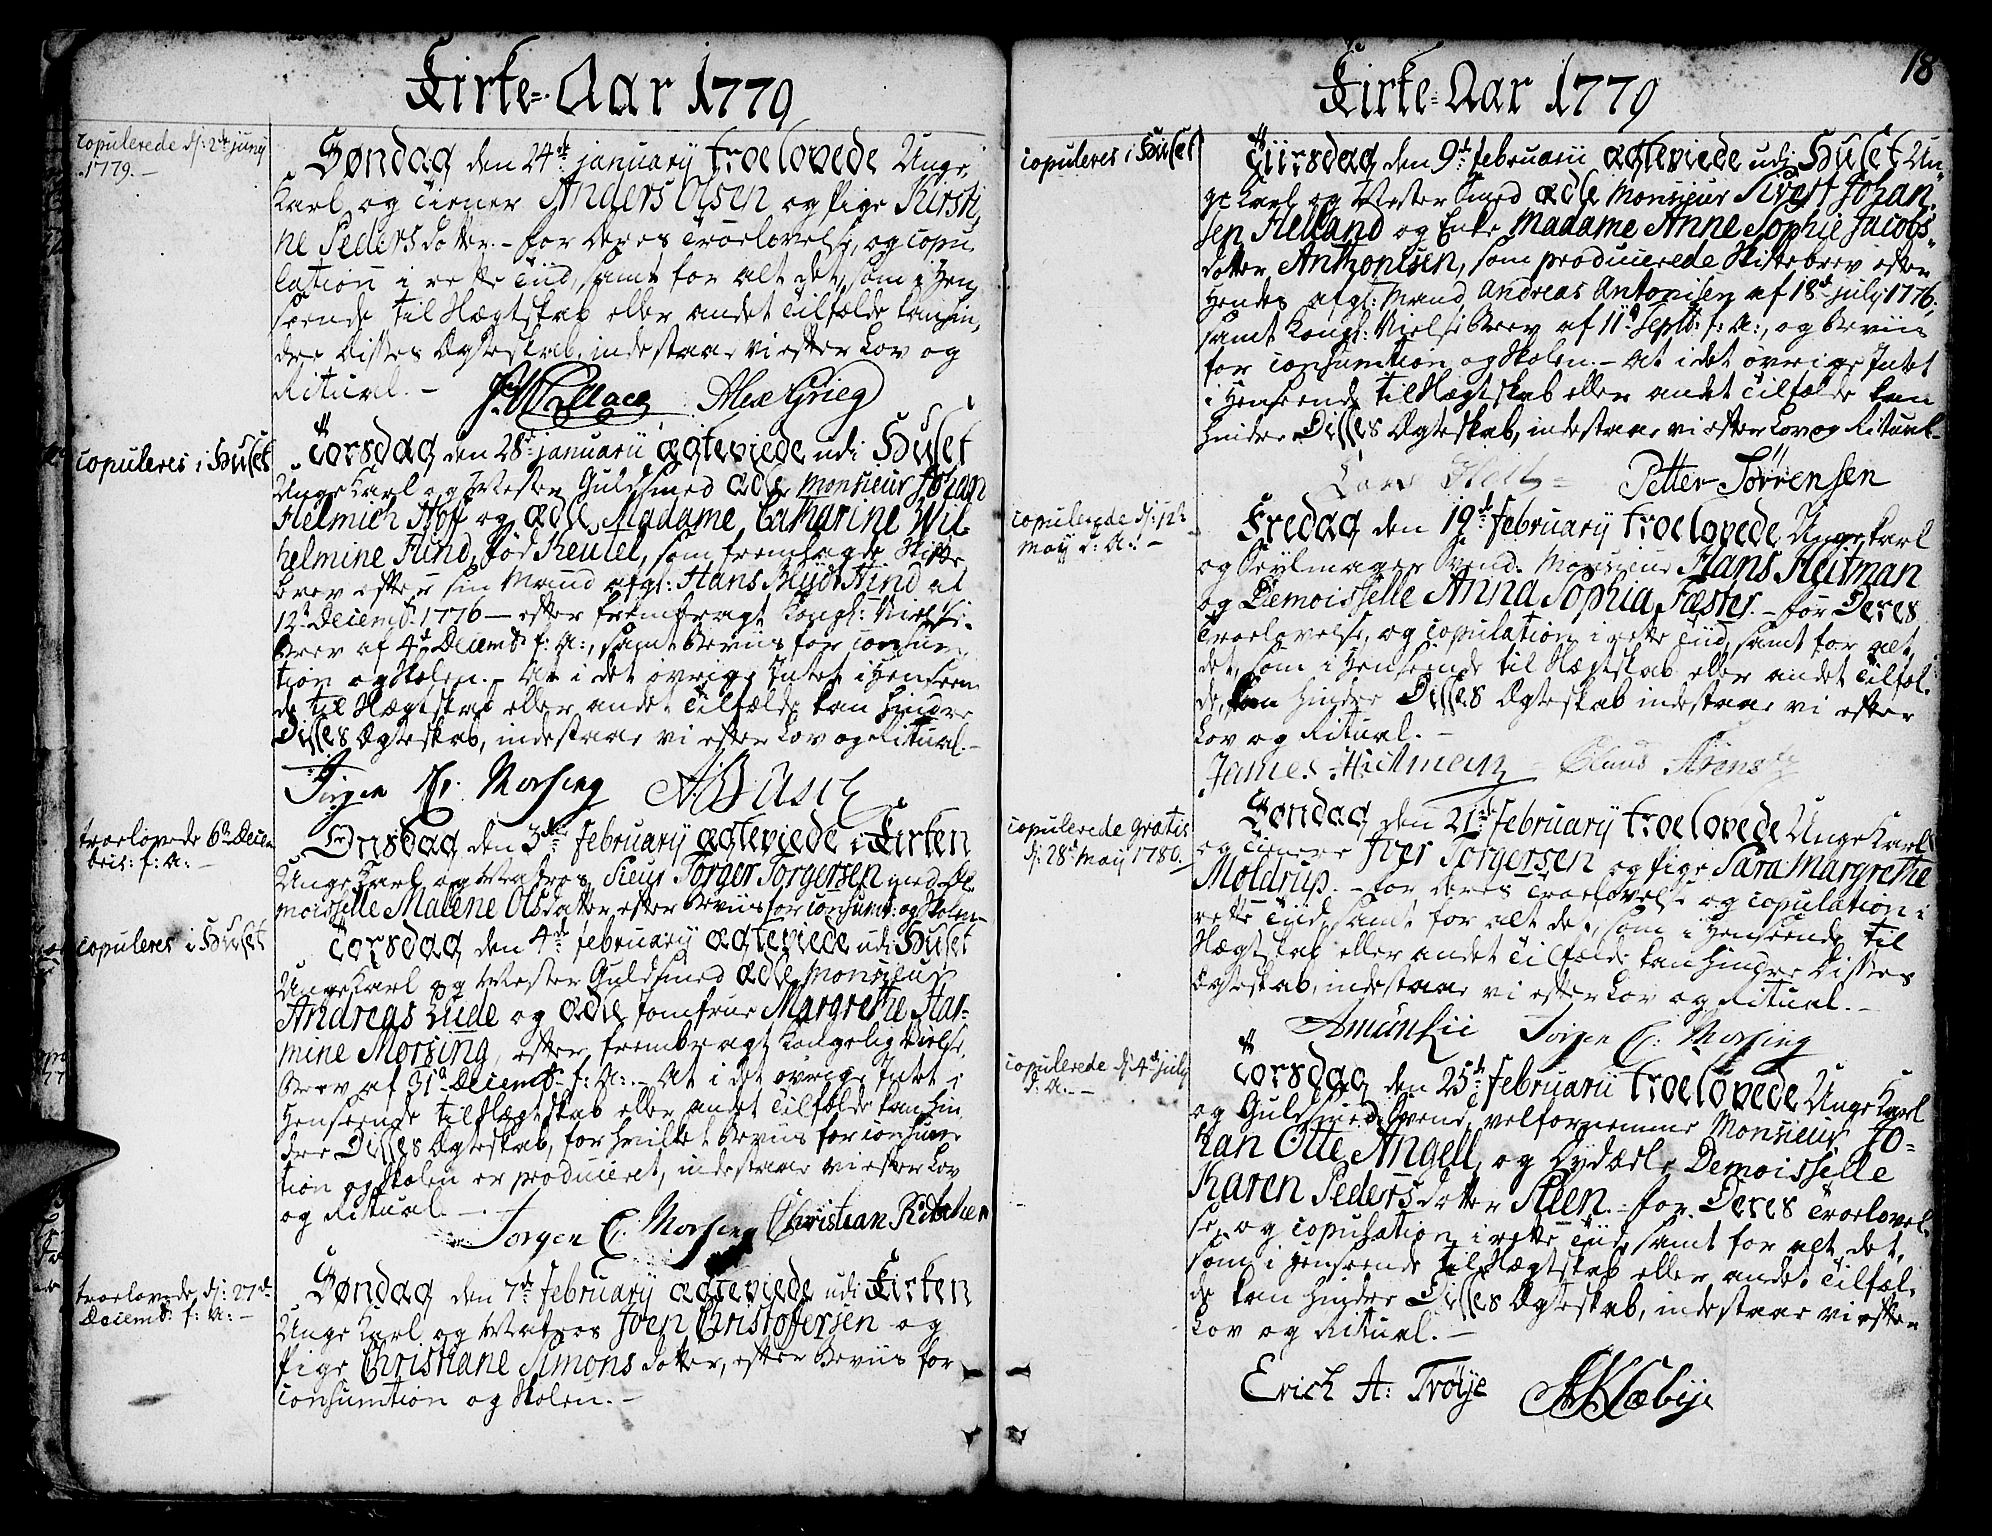 Kirke-Aar 1779
copulerede d: 2de juny
1779. -
Søndag den 24de january troelovede Unge
Karl og Tiener Anders Olsen og Pige Kirsti-
ne Peders dotter. - for Deres Troelovelse, og copu-
lation i rette Tiid, samt for alt det, som i Hen-
seende til Slægtskab eller andet Tilfælde kan hin-
dre Disses Ægteskab, indestaae vi efter Lov og
Ritual. -
J. Wallace Alex Grieg
copuleres i Huset
Torsdag den 28de januarii ægteviede udi Huset
Unge Karl og Mester Guldsmed ædle Monsieur Johan
Helmich Hoff og ædle Madame Catharine Wil-
helmine Hind, fød Keutel, som fremlagde Skifte
brev efter sin Mand afgl: Hans Blydt Hind af
12te Decemb. 1776 - efter frembragt Kongl: Vielse-
Brev af 4de Decemb: f: A:, samt Beviis for consum-
tion og Skolen. - At i det øvrige Intet i Henseen-
de til Slægtskab eller andet Tilfælde kan hindre
Disses Ægteskab, indestaae vi efter Lov og Ritual. -
Jørgen C. Morsing A. Busch
troelovede 6te Decem-
bris: f: A: -
Onsdag den 3de february ægteviede i Kirken
Unge Karl og Matros Sieur Torger Torgersen med De-
moisselle Malene Olsdatter efter Beviis for consumt: og Skolen -
copuleres i Huset
Torsdag den 4de february ægteviede udi Huset
Unge Karl og Mester Guldsmed ædle Monsieur
Andreas Lude og ædle Jomfrue Margrethe Har-
mine Morsing, efter frembragt Kongelig Vielse-
Brev af 31te Decemb. f: A: - At i det øvrige Intet i
Henseende til Slægtskab eller andet Tilfælde kan hin-
dre Disses Ægteskab, for hvilket Beviis for consum-
tion og Skolen er produceret, indestaae vi efter Lov
og Ritual. -
Jørgen C. Morsing Christian
troelovede d: 27de
Decemb: f: A: -
Søndag den 7de february ægteviede udi Kirken
Unge Karl og Matros Joen Christoffersen og
Pige Christiane Simons dotter, efter Beviis for
consumtion og Skolen. -
18
Kirke-Aar 1779
copuleres i Huset
Tiirsdag den 9de februarii ægteviede udi Huset Un-
ge Karl og Mester Smed ædle Monsieur Sivert Johan-
sen Helland og Enke Madame Anne Sophie Jacobs-
dotter Anthonisen, som producerede Skiftebrev efter
Hendes afgl: Mand Andreas Antonisen af 18de july 1776,
samt Kongl: Vielse Brev af 11te Septb: f: A:, og Beviis
for consumtion og Skolen. - At i det øvrige Intet
i Henseende til Slægtskab eller andet Tilfælde kan
hindre Disses Ægteskab, indestaae vi efter Lov og Ritual. -
Petter Sørrensen
copulerede d: 12te
May d: A: -
Fredag den 19de february troelovede Unge Karl
og Seylmager Svend Monsieur Hans Heitman
og Demoisselle Anna Sophia Fæster. - for Deres
Troelovelse, og copulation i rette Tiid, samt for alt
det, som i Henseende til Slægtskab eller andet Tilfæl-
de, kan hindre Disses Ægteskab indestaae vi efter
Lov og Ritual. -
James Heitmann Claus
copulerede gratis
d: 28de May 1780. -
Søndag den 21de february troelovede Unge Karl
og Tiener Iver Torgersen og Pige Sara Margrethe
Moldrup. - for Deres Troelovelse og copulation i
rette Tiid, samt for alt det, som i Henseende til
Slægtskab eller andet Tilfælde kan hindre Disses
Ægteskab, indestaae vi efter Lov og Ritual. -
Jørgen C. Morsing
copulerede d: 4de july
d: A. -
Torsdag den 25de februarii troelovede Unge Karl
og Guldsmed Svend velfornemme Monsieur Jo-
han Otte Angell, og Dydædle Demoisselle
Karen Peders dotter Steen. - for Deres Troelovel-
se, og copulation i rette Tiid, samt for alt det,
som i Henseende til Slægtskab eller andet Tilfæl-
de kan hindre Disses Ægteskab, indestaae vi efter
Lov og Ritual. -
Erich A: Trøije Klæbije